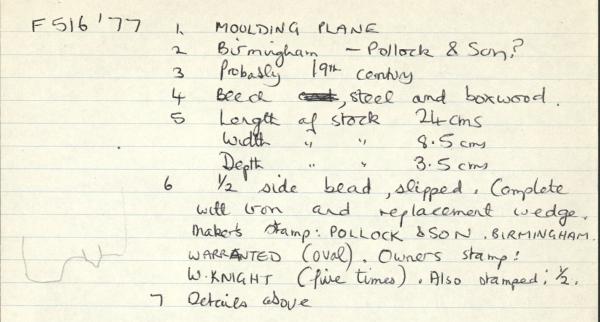 F516'77 1 MOOLDING PLANE
2 Birmingham - Pollock & Son?
3 Probably 19th century
4 Beech, steel and boxwood.
5 Length of stock 24cms
Width " " 8.5cms
Depth " " 3.5cms
6 1/2 side bead, slipped. Complete
with iron and replacement wedge.
Makers stamp: POLLOCK & SON. BIRMINGHAM.
WARRANTED (oval). Owners stamp:
W. KNIGHT (five times). Also stamped: 1/2.
7 Details above